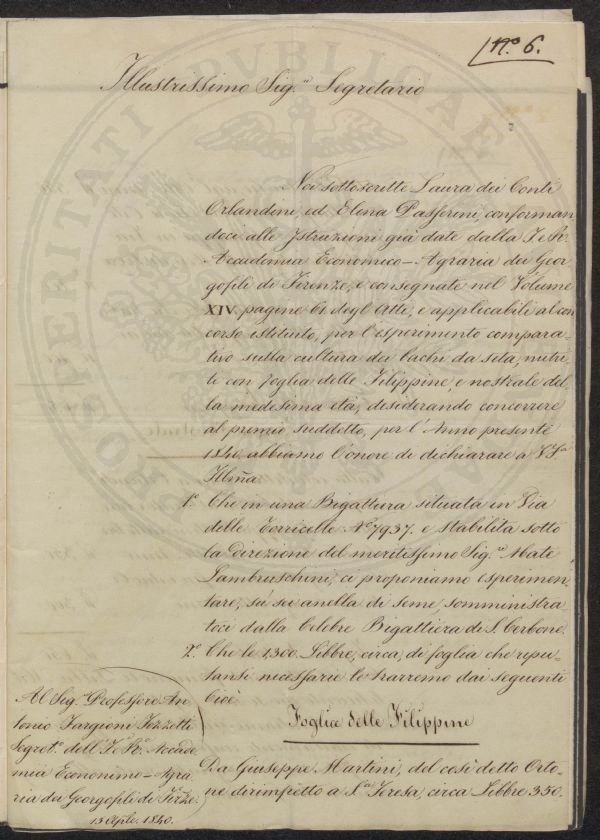 n.° 6.
Illustrissimo Sig.re Segretario
Noi sottoscritte Laura dei Conti
Orlandini, ed Elena Passerini, conforman
doci alle Istruzioni già date dalla I. e R.
Accademia Economico-Agraria dei Geor
gofili di Firenze, e consegnate nel Volume
XIV, pagine 61. degl'Atti, e applicabili al con
corso istituito, per l'esperimento compara-
tivo sulla cultura dei bachi da seta, nutri
ti con foglia delle Filippine, e nostrale del
la medesima età, desiderando concorrere
al premio suddetto, per l'Anno presente
1840. abbiamo l'onore di dichiarare a V.S.a
Illma
1.° Che in una Bigattiera situata in Via
delle Torricelle N.° 7937. e stabilita sotto
la direzione del meritissimo Sig.re Abate
Lambruschini, ci proponiamo esperimen
tare, su sei anella di seme, somministra
toci dalla Celebre Bigattiera di S. Cerbone.
2.° Che le 1300. Libbre, circa, di foglia che repu-
tansi necessarie le trarremo dai seguenti
Cioè
Foglie delle Filippine
Da Giuseppe Martini, del così detto Orto-
ne dirimpetto a S.ta Teresa, circa Libbre 350.
Al Sig.re Professore An
tonio Targioni Tozzetti
Segret.° dell'I. e R. Accade
mia Economico-Agra
ria dei Georgofili di Firze.
15 Aple. 1840.
PROSPERITATI PVBLICAE